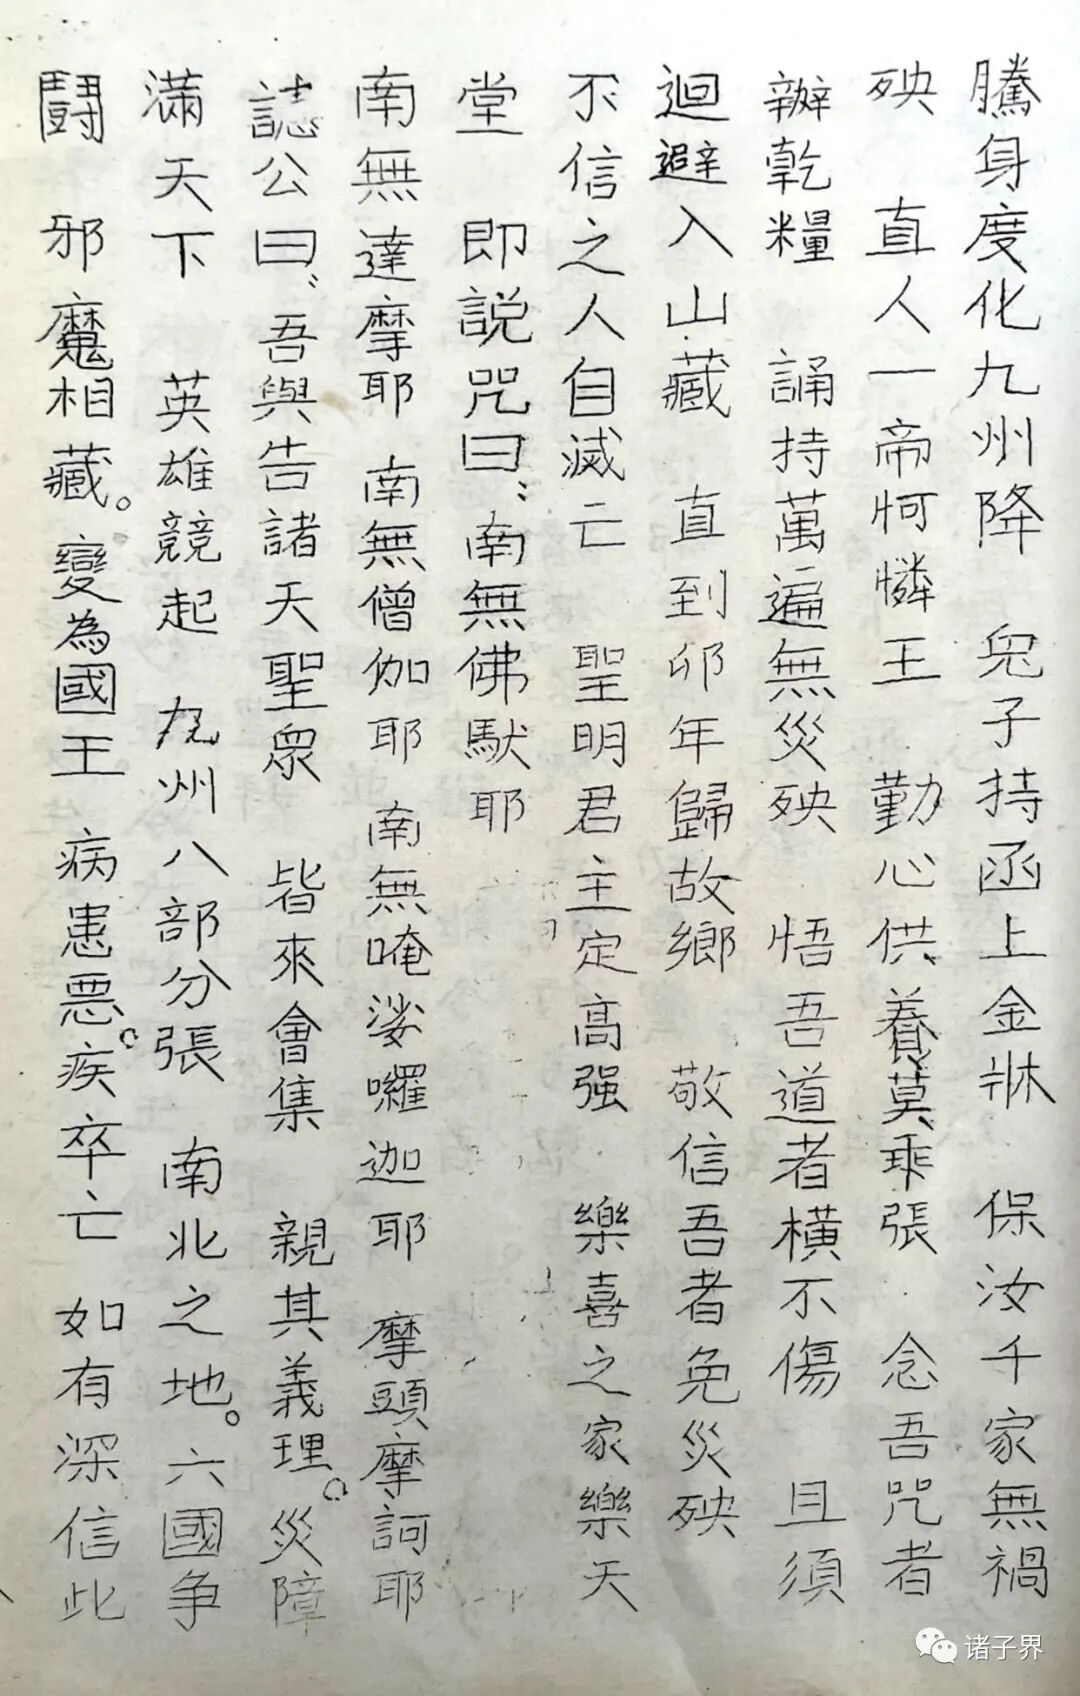 騰身度化九州降 兒子持函上金牀 保汝千家無禍
殃 直人一帝怜憐王 勤心供養莫乖張 念吾咒者
辦乾糧 誦持萬遍無災殃 悟吾道者橫不傷 且須
迴避入山藏 直到卯年歸故鄉 敬信吾者免災殃
不信之人自滅亡 聖明君主定高强 樂喜之家樂天
堂 即説咒曰：南無佛馱耶
南無達摩耶 南無僧伽耶 南無唵娑囉迦耶 摩頭摩訶耶
誌公曰：吾與告諸天聖眾 皆來會集 親其義理。災障
滿天下 英雄競起 九州八部分張 南北之地。六國争
鬪 邪魔相藏。變為國王 病患惡疾卒亡 如有深信此
诸子界